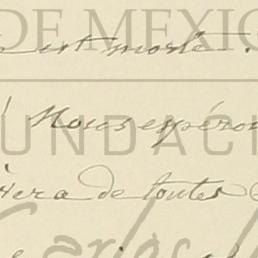 DE MEXICO
est morte.
! Nous espéron
FUNDACI
era de toutes
Carlos